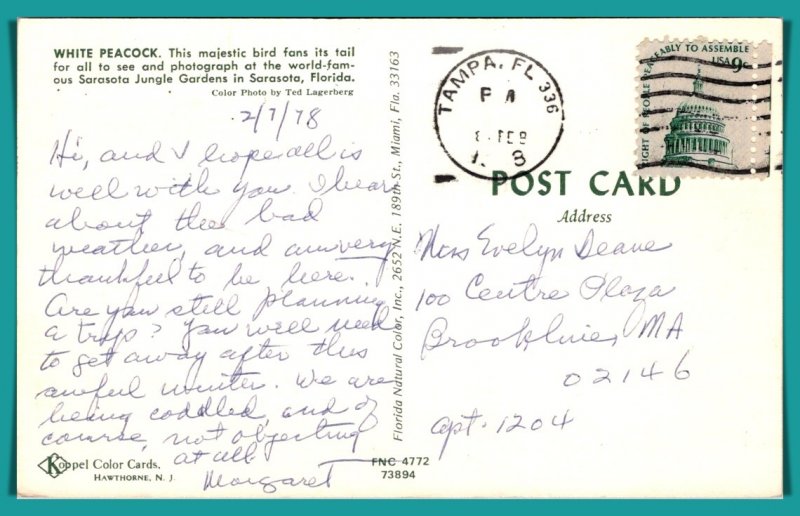 WHITE PEACOCK. This majestic bird fans its tail
for all to see and photograph at the world-fam-
ous Sarasota Jungle Gardens in Sarasota, Florida.
Color Photo by Ted Lagerberg
2/7/78
Hi, and I hope all is
well with you. I hear
about the bad
weather, and am very
thankful to be here.
Are you still planning
a trip? You will need
to get away after this
awful winter. We are
being coddled, and of
course, not objecting
at all.
Margaret
Koppel Color Cards,
HAWTHORNE, N. J.
Florida Natural Color, Inc., 2652 N.E. 189th St., Miami, Fla. 33163
FNC-4772
73894
TAMPA, FL 336
8 FEB
RIGHT OF PEOPLE PEACEABLY TO ASSEMBLE
USA 9c
POST CARD
Address
Miss Evelyn Deane
100 Centre Plaza
Brookline, MA
02146
apt. 1204